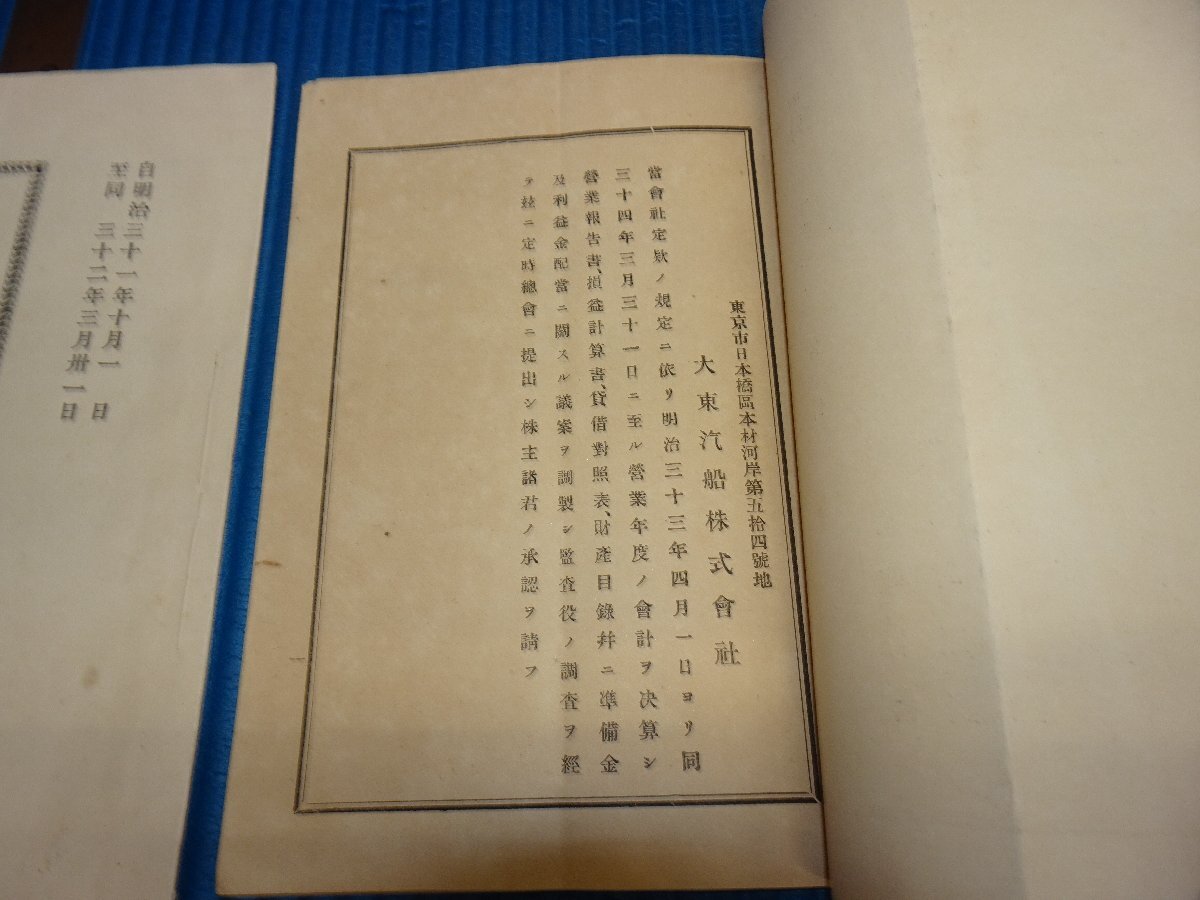 東京市日本橋區本材河岸第五拾四號地
大東汽船株式會社
當會社定欵ノ規定ニ依リ明治三十三年四月一日ヨリ同
三十四年三月三十一日ニ至ル營業年度ノ會計ヲ決算シ
營業報告書、損益計算書、貸借對照表、財產目錄幷ニ準備金
及利益金配當ニ關スル議案ヲ調製シ監査役ノ調査ヲ經
テ玆ニ定時總會ニ提出シ株主諸君ノ承認ヲ請フ
自明治三十一年十月一日
至同三十二年三月卅一日